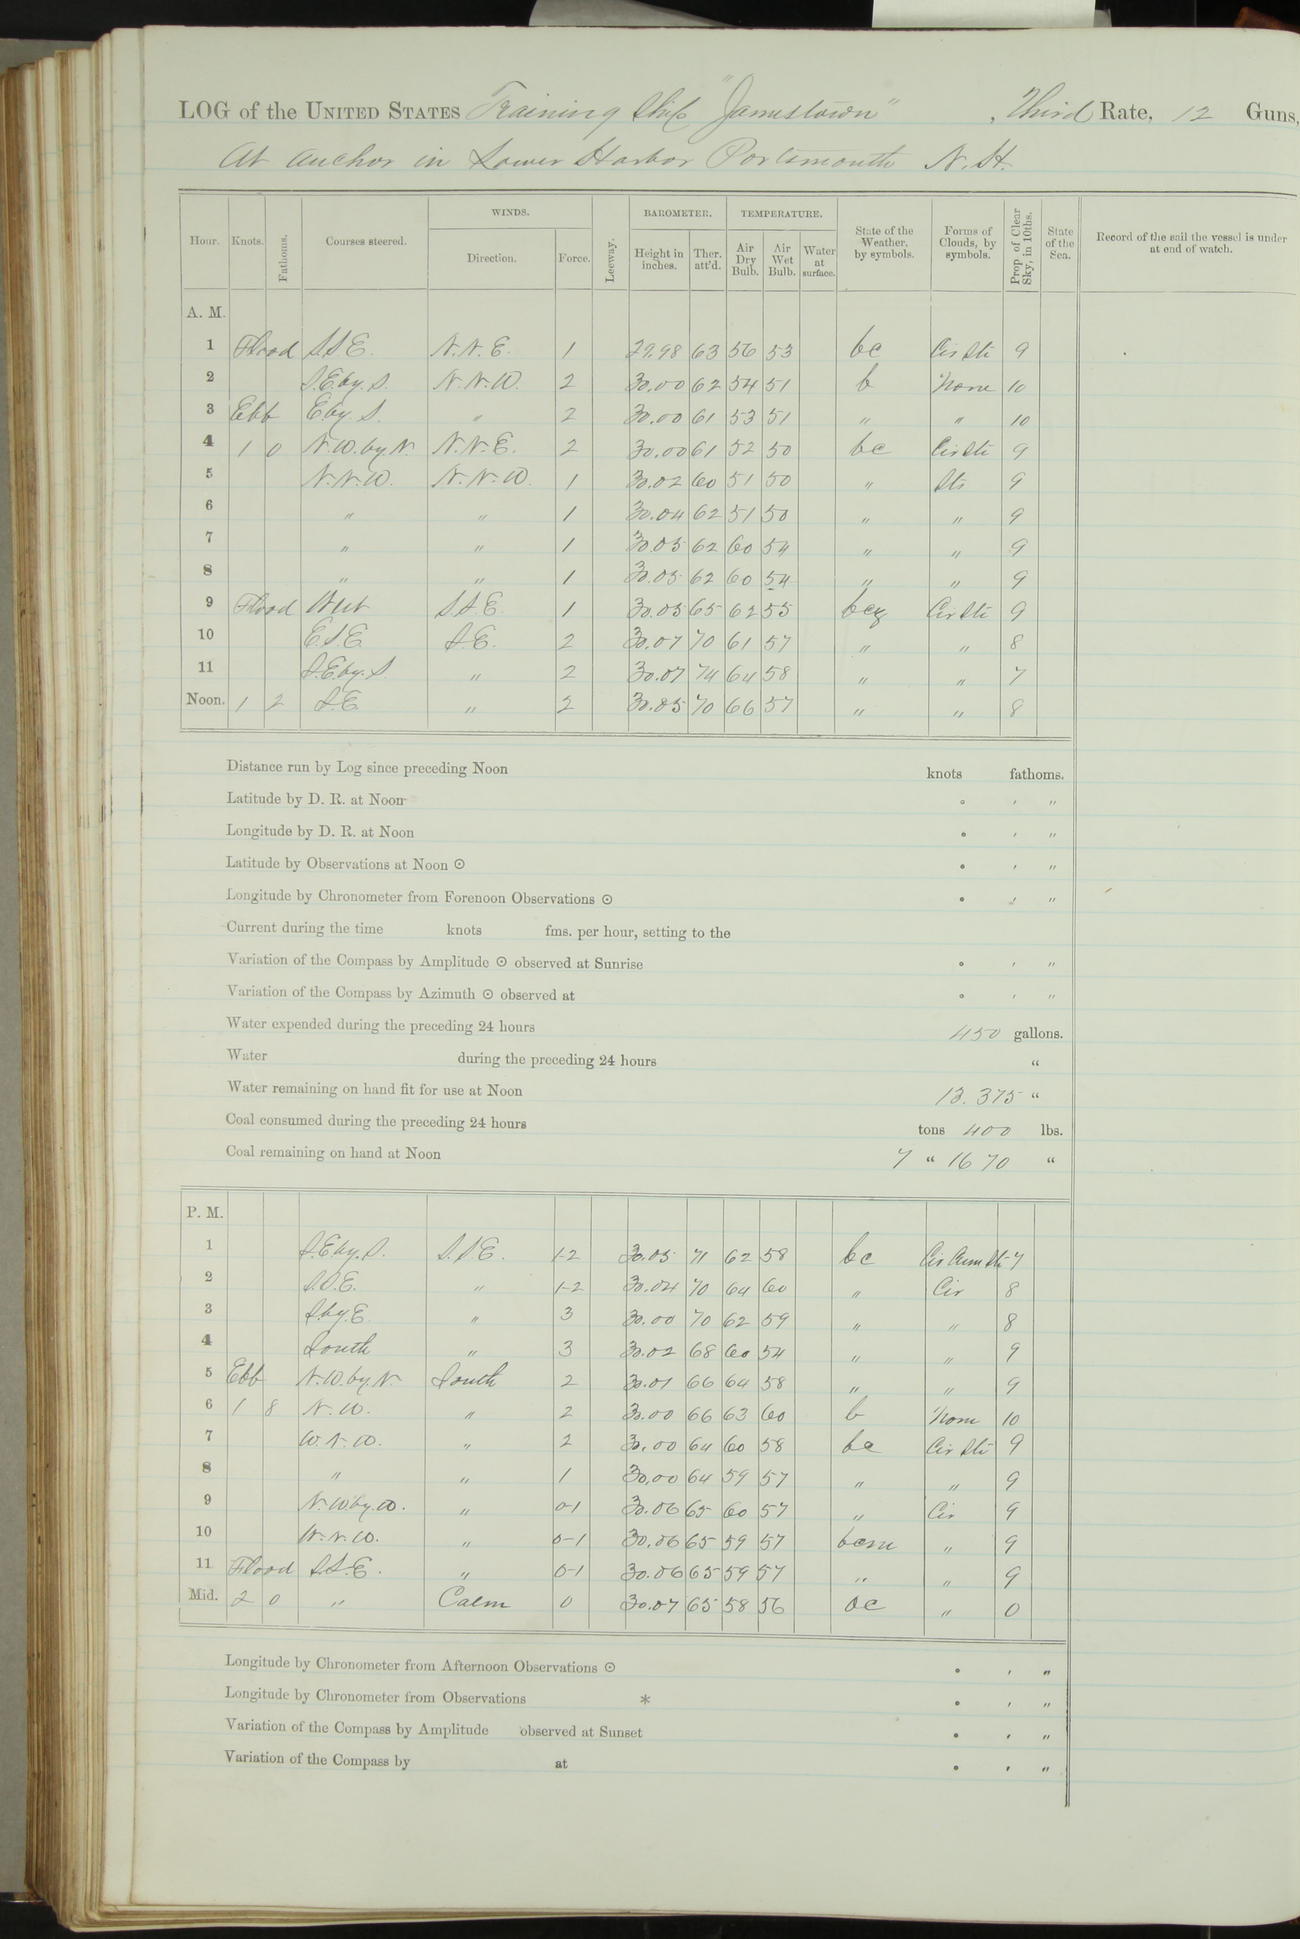 LOG of the UNITED STATES Training Ship "Jamestown", Third Rate, 12 Guns,
At anchor in Lower Harbor Portsmouth N. H.
WINDS. BAROMETER. TEMPERATURE.
Hour. Knots. Fathoms. Courses steered. Direction. Force. Leeway. Height in inches. Ther. att'd. Air Dry Bulb. Air Wet Bulb. Water at surface. State of the Weather, by symbols. Forms of Clouds, by symbols. Prop of Clear Sky, in 10ths. State of the Sea. Record of the sail the vessel is under at end of watch.
A. M.
1 Flood S.S.E. N.N.E. 1 29.98 63 56 53 bc Cir Sti 9
2 S.E. by S. N.N.W. 2 30.00 62 54 51 b None 10
3 Ebb E by S. " 2 30.00 61 53 51 " " 10
4 1 0 N.W. by N. N.N.E. 2 30.00 61 52 50 bc Cir Sti 9
5 N.N.W. N.N.W. 1 30.02 60 51 50 " Sti 9
6 " " 1 30.04 62 51 50 " " 9
7 " " 1 30.05 62 60 54 " " 9
8 " " 1 30.05 62 60 54 " " 9
9 Flood West S.S.E. 1 30.05 65 62 55 bcz Cir Sti 9
10 E.S.E. S.E. 2 30.07 70 61 57 " " 8
11 S.E. by S. " 2 30.07 74 64 58 " " 7
Noon. 1 2 S.E. " 2 30.05 70 66 57 " " 8
Distance run by Log since preceding Noon knots fathoms.
Latitude by D. R. at Noon ° ' "
Longitude by D. R. at Noon ° ' "
Latitude by Observations at Noon ⊙ ° ' "
Longitude by Chronometer from Forenoon Observations ⊙ ° ' "
Current during the time knots fms. per hour, setting to the
Variation of the Compass by Amplitude ⊙ observed at Sunrise ° ' "
Variation of the Compass by Azimuth ⊙ observed at ° ' "
Water expended during the preceding 24 hours 450 gallons.
Water during the preceding 24 hours "
Water remaining on hand fit for use at Noon 13.375 "
Coal consumed during the preceding 24 hours tons 400 lbs.
Coal remaining on hand at Noon 7 " 1670 "
P. M.
1 S.E. by S. S.S.E. 1-2 30.05 71 62 58 bc Cir Cum Sti 7
2 S.S.E. " 1-2 30.04 70 64 60 " Cir 8
3 S. by E. " 3 30.00 70 62 59 " " 8
4 South " 3 30.02 68 60 54 " " 9
5 Ebb N.W. by N. South 2 30.01 66 64 58 " " 9
6 1 8 N.W. " 2 30.00 66 63 60 b None 10
7 W.N.W. " 2 30.00 64 60 58 bc Cir Sti 9
8 " " 1 30.00 64 59 57 " " 9
9 N.W. by W. " 0-1 30.06 65 60 57 " Cir 9
10 W.N.W. " 0-1 30.06 65 59 57 bcm " 9
11 Flood S.S.E. " 0-1 30.06 65 59 57 " " 9
Mid. 2 0 " Calm 0 30.07 65 58 56 oc " 0
Longitude by Chronometer from Afternoon Observations ⊙ ° ' "
Longitude by Chronometer from Observations * ° ' "
Variation of the Compass by Amplitude observed at Sunset ° ' "
Variation of the Compass by at ° ' "